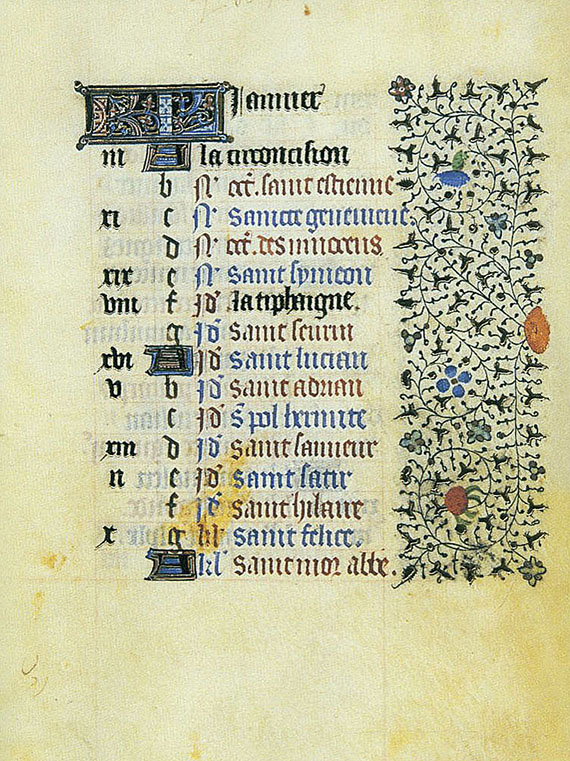 KL Januier
iii A la circoncision
b N oct. saint estienne
xi c N Saincte geneuieue.
d N oct. des innocens
xix e N Saint symeon
viii f Jd la tiphaigne.
g Jd Saint seurin
xvi A Jd Saint lucian
v b Jd Saint adrian
c Jd S pol hermite
xiii d Jd Saint sauueur
ii e Jd Saint satir
f Jd Saint hilaire
x g kl Saint felice.
A kl Saint mor abbe.